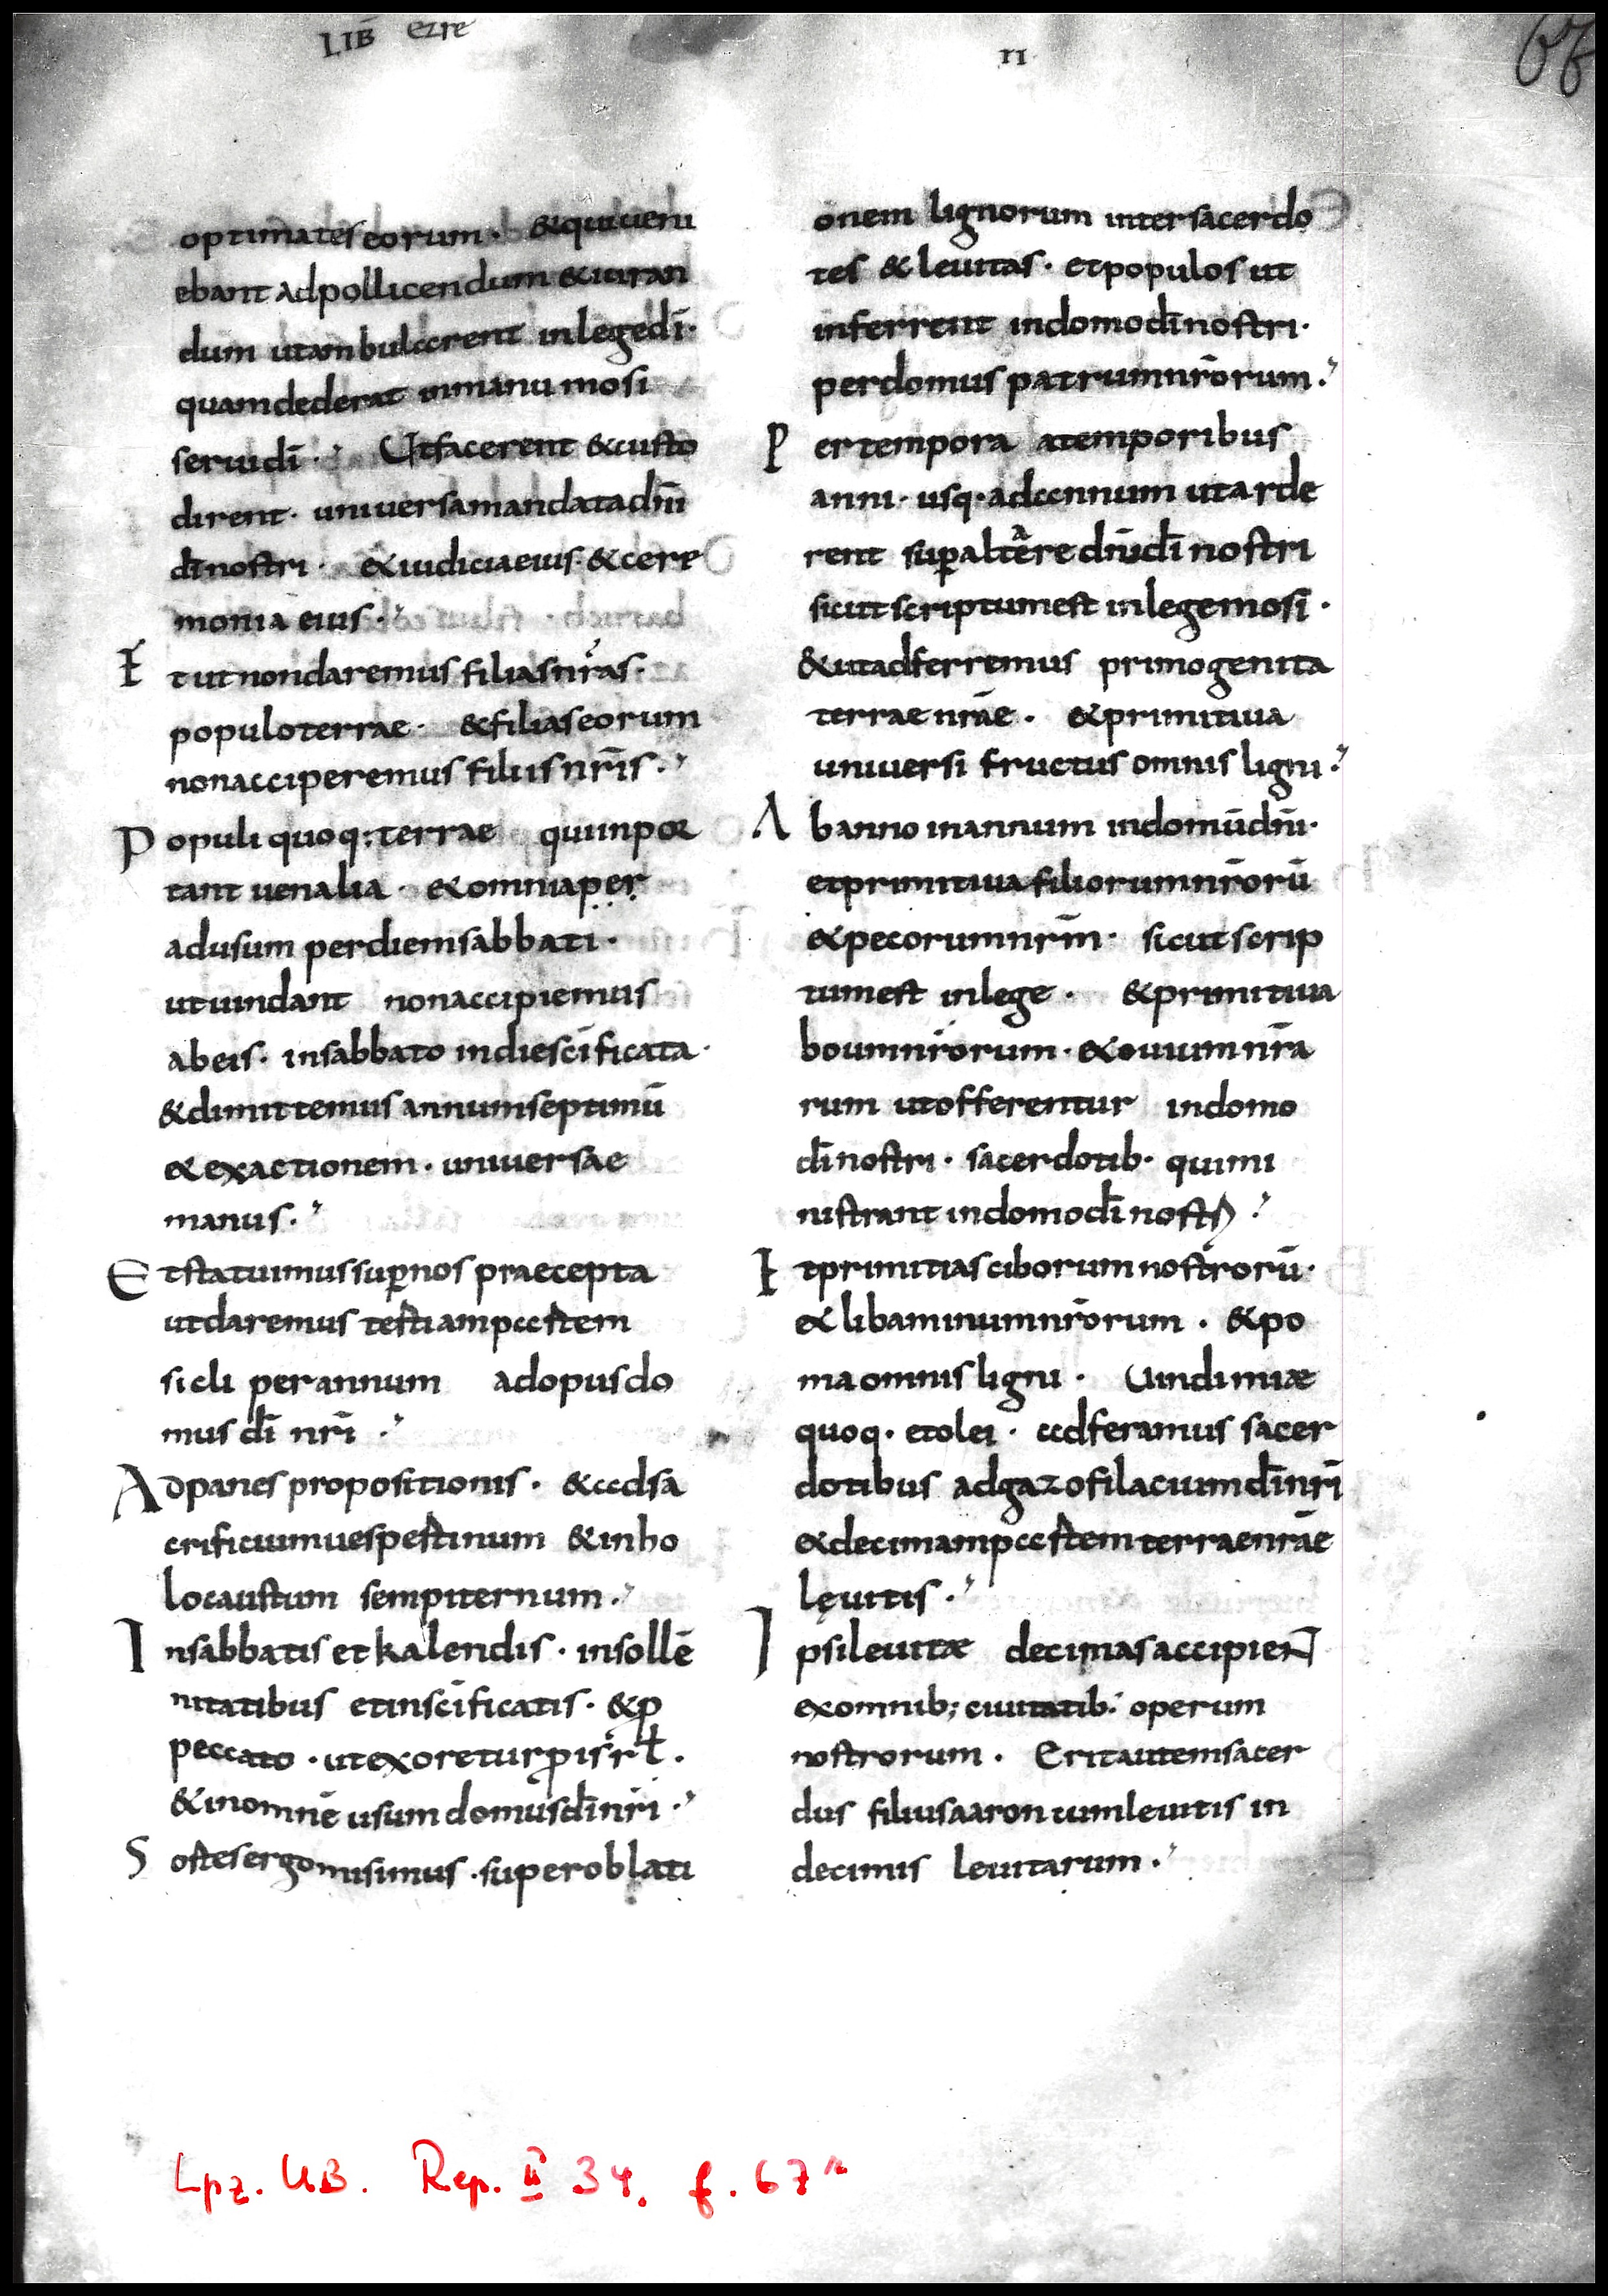 LIB̄ ezre
II
67
optimates eorum · & qui ueni
ebant ad pollicendum & iuran
dum ut ambularent in lege dī ·
quam dederat in manu mosi
serui dī · Ut facerent & custo
dirent · uniuersa mandata dn̄i
dī nostri · & iudicia eius · & cere
monia eius ·
Et ut non daremus filias nr̄as ·
populo terrae · & filias eorum
non acciperemus filiis nr̄is ·
Populi quoq; terrae qui inpor
tant uenalia · & omnia per
ad usum per diem sabbati ·
ut uindant non accipiemus
ab eis · in sabbato in die sc̄ificata ·
& dimittemus annum septimū
& exactionem · uniuersae
manus ·
Et statuimus sup̄ nos praecepta
ut daremus testiam partem
sicli per annum ad opus do
mus dī nr̄i ·
Ad panes propositionis · & ad sa
crificium uespestinum & in ho
locaustum sempiternum ·
In sabbatis et kalendis · in sollē
nitatibus et in sc̄ificatis · & ꝓ
peccato · ut exoretur ꝓ isrł ·
& in omnē usum domus dī nr̄i ·
Sostes ergo misimus · super oblati
onem lignorum inter sacerdo
tes & leuitas · et populos ut
inferrent in domo dī nostri ·
per domus patrum nr̄orum ·
Per tempora a temporibus
anni · usq · ad annum ut arde
rent sup̄ altare dn̄i dī nostri
sicut scriptum est in lege mosi ·
& ut adferremus primogenita
terrae nr̄ae · & primitiua
uniuersi fructus omnis ligni ·
Ab anno in annum in domū dn̄i ·
et primitiua filiorum nr̄orū
& pecorum nr̄m · sicut scrip
tum est in lege · & primitiua
boum nr̄orum · & ouium nr̄a
rum ut offerentur in domo
dī nostri · sacerdotib · qui mi
nistrant in domo dī nostri ·
Et primitias ciborum nostrorū ·
& libaminum nr̄orum · & po
ma omnis ligni · Uindimiæ
quoq · et olei · adferamus sacer
dotibus ad gazofilacium dī nr̄i
& decimam partem terrae nr̄ae
lęuitis ·
Ipsi leuitæ decimas accipieNT
ex omnib; ciuitatib: operum
nostrorum · Erit autem sacer
dus filius aaron cum leuitis in
decimis leuitarum ·
Lpz. UB. Rep. II 34. f. 67r